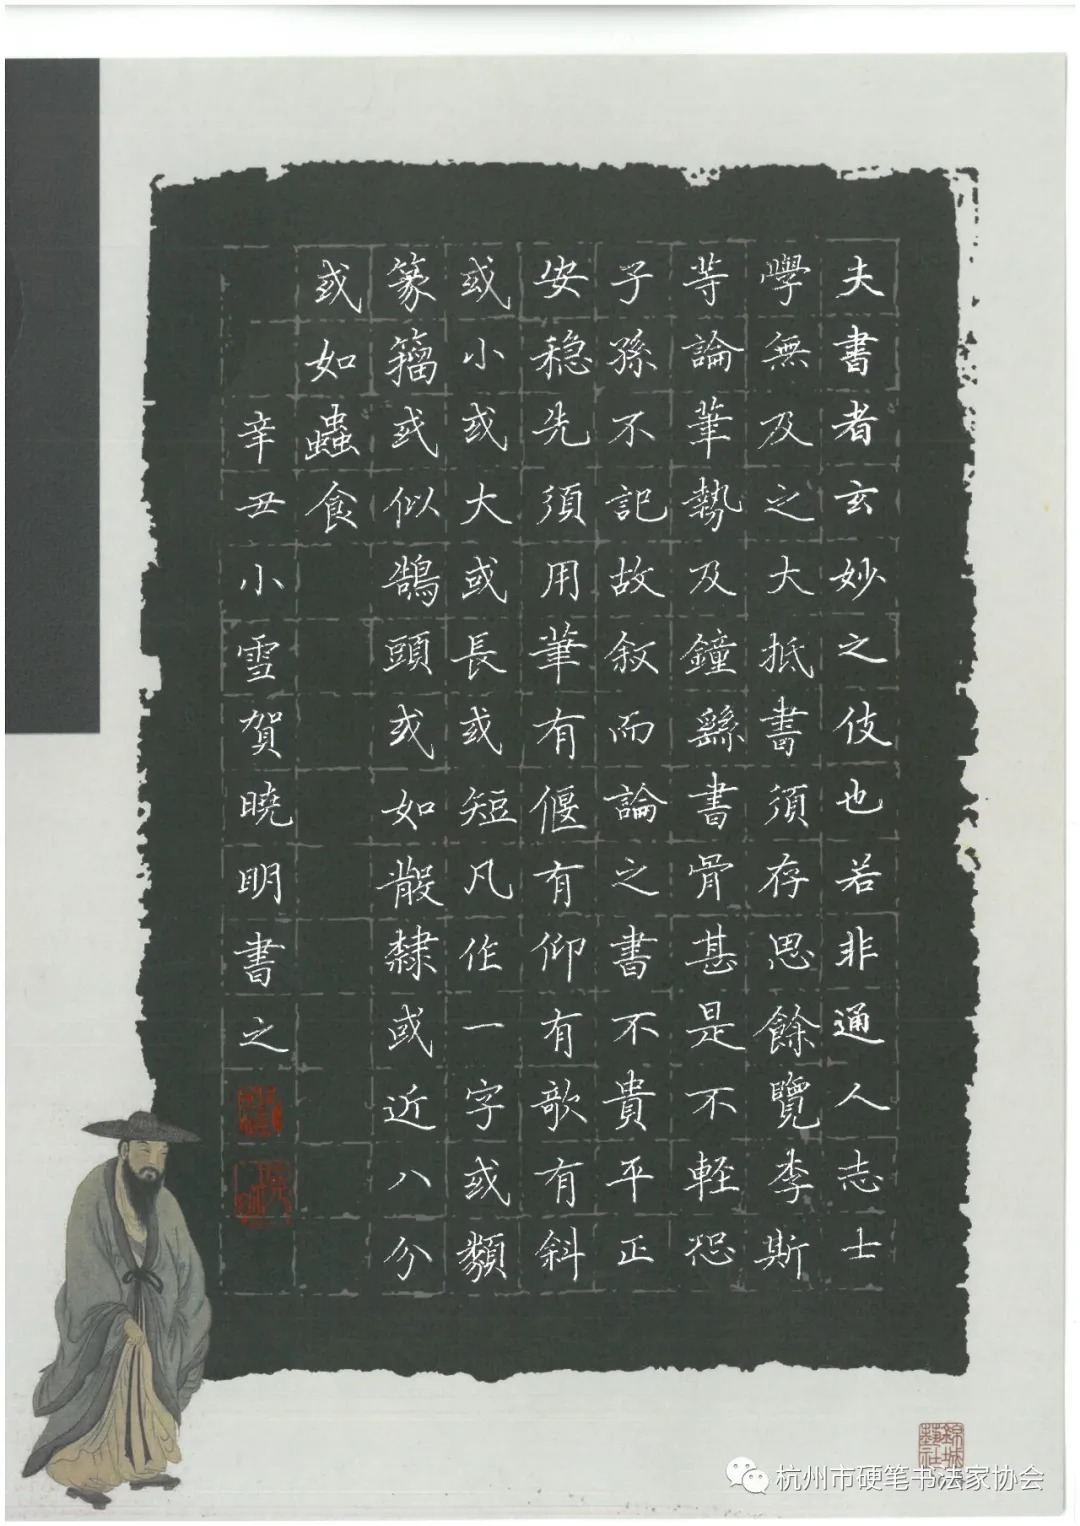 夫書者玄妙之伎也若非通人志士
學無及之大抵書須存思余覽李斯
等論筆勢及鐘繇書骨甚是不輕恐
子孫不記故敘而論之書不貴平正
安穏先須用筆有偃有仰有欹有斜
或小或大或長或短凡作一字或類
篆籀或似鵠頭或如散隸或近八分
或如蟲食
辛丑小雪賀曉明書之
錦城藝社
杭州市硬笔书法家协会